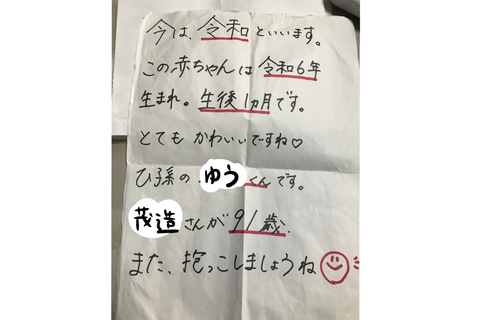 今は、令和といいます。
この赤ちゃんは令和6年
生まれ。生後1ヵ月です。
とてもかわいいですね♡
ひ孫のゆうくんです。
茂造さんが91歳.
また、抱っこしましょうね